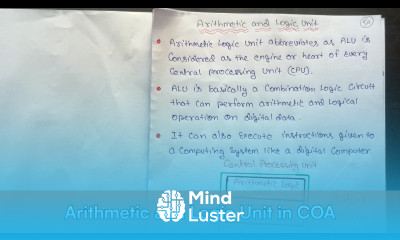 Arithmetic and Logic Unit
Arithmetic Logic Unit abbreviates as ALU is
Considered as the engine or heart of every
Central Processing Unit (CPU).
ALU is basically a Combination Logic Circuit
that can perform arithmetic and logical
operation on digital data.
It can also Execute instructions given to
a Computing System like a digital Computer
Central Processing Unit
Arithmetic Logic
Arithmetic Unit in COA
Mind
Luster